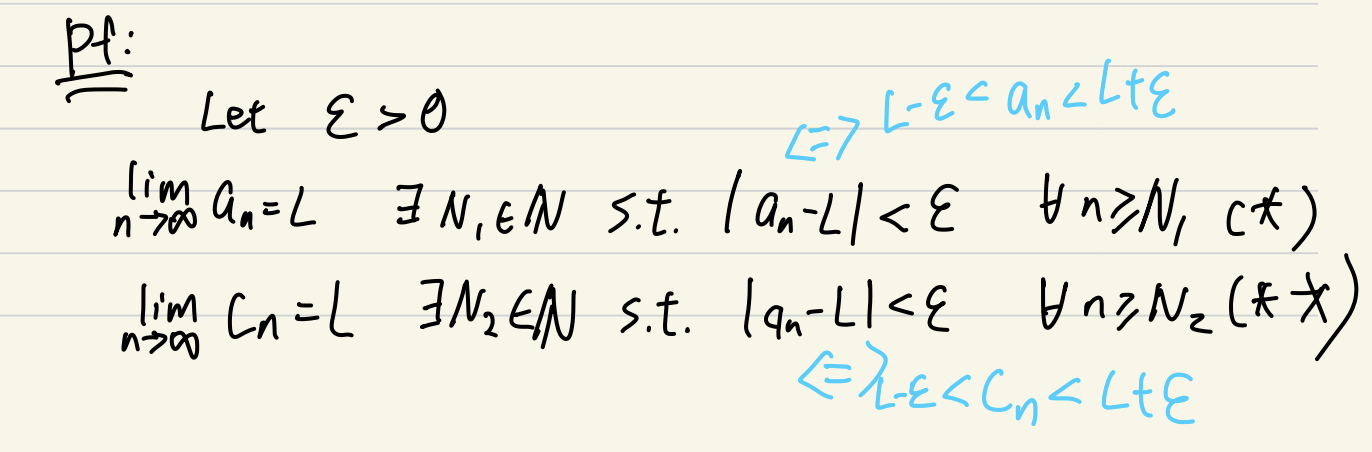 Pf:
Let ε > 0
⇔ L-ε < aₙ < L+ε
lim n→∞ aₙ = L ∃ N₁ ∈ ℕ s.t. |aₙ-L| < ε ∀ n ≥ N₁ (*)
lim n→∞ Cₙ = L ∃ N₂ ∈ ℕ s.t. |aₙ-L| < ε ∀ n ≥ N₂ (**)
⇔ L-ε < Cₙ < L+ε